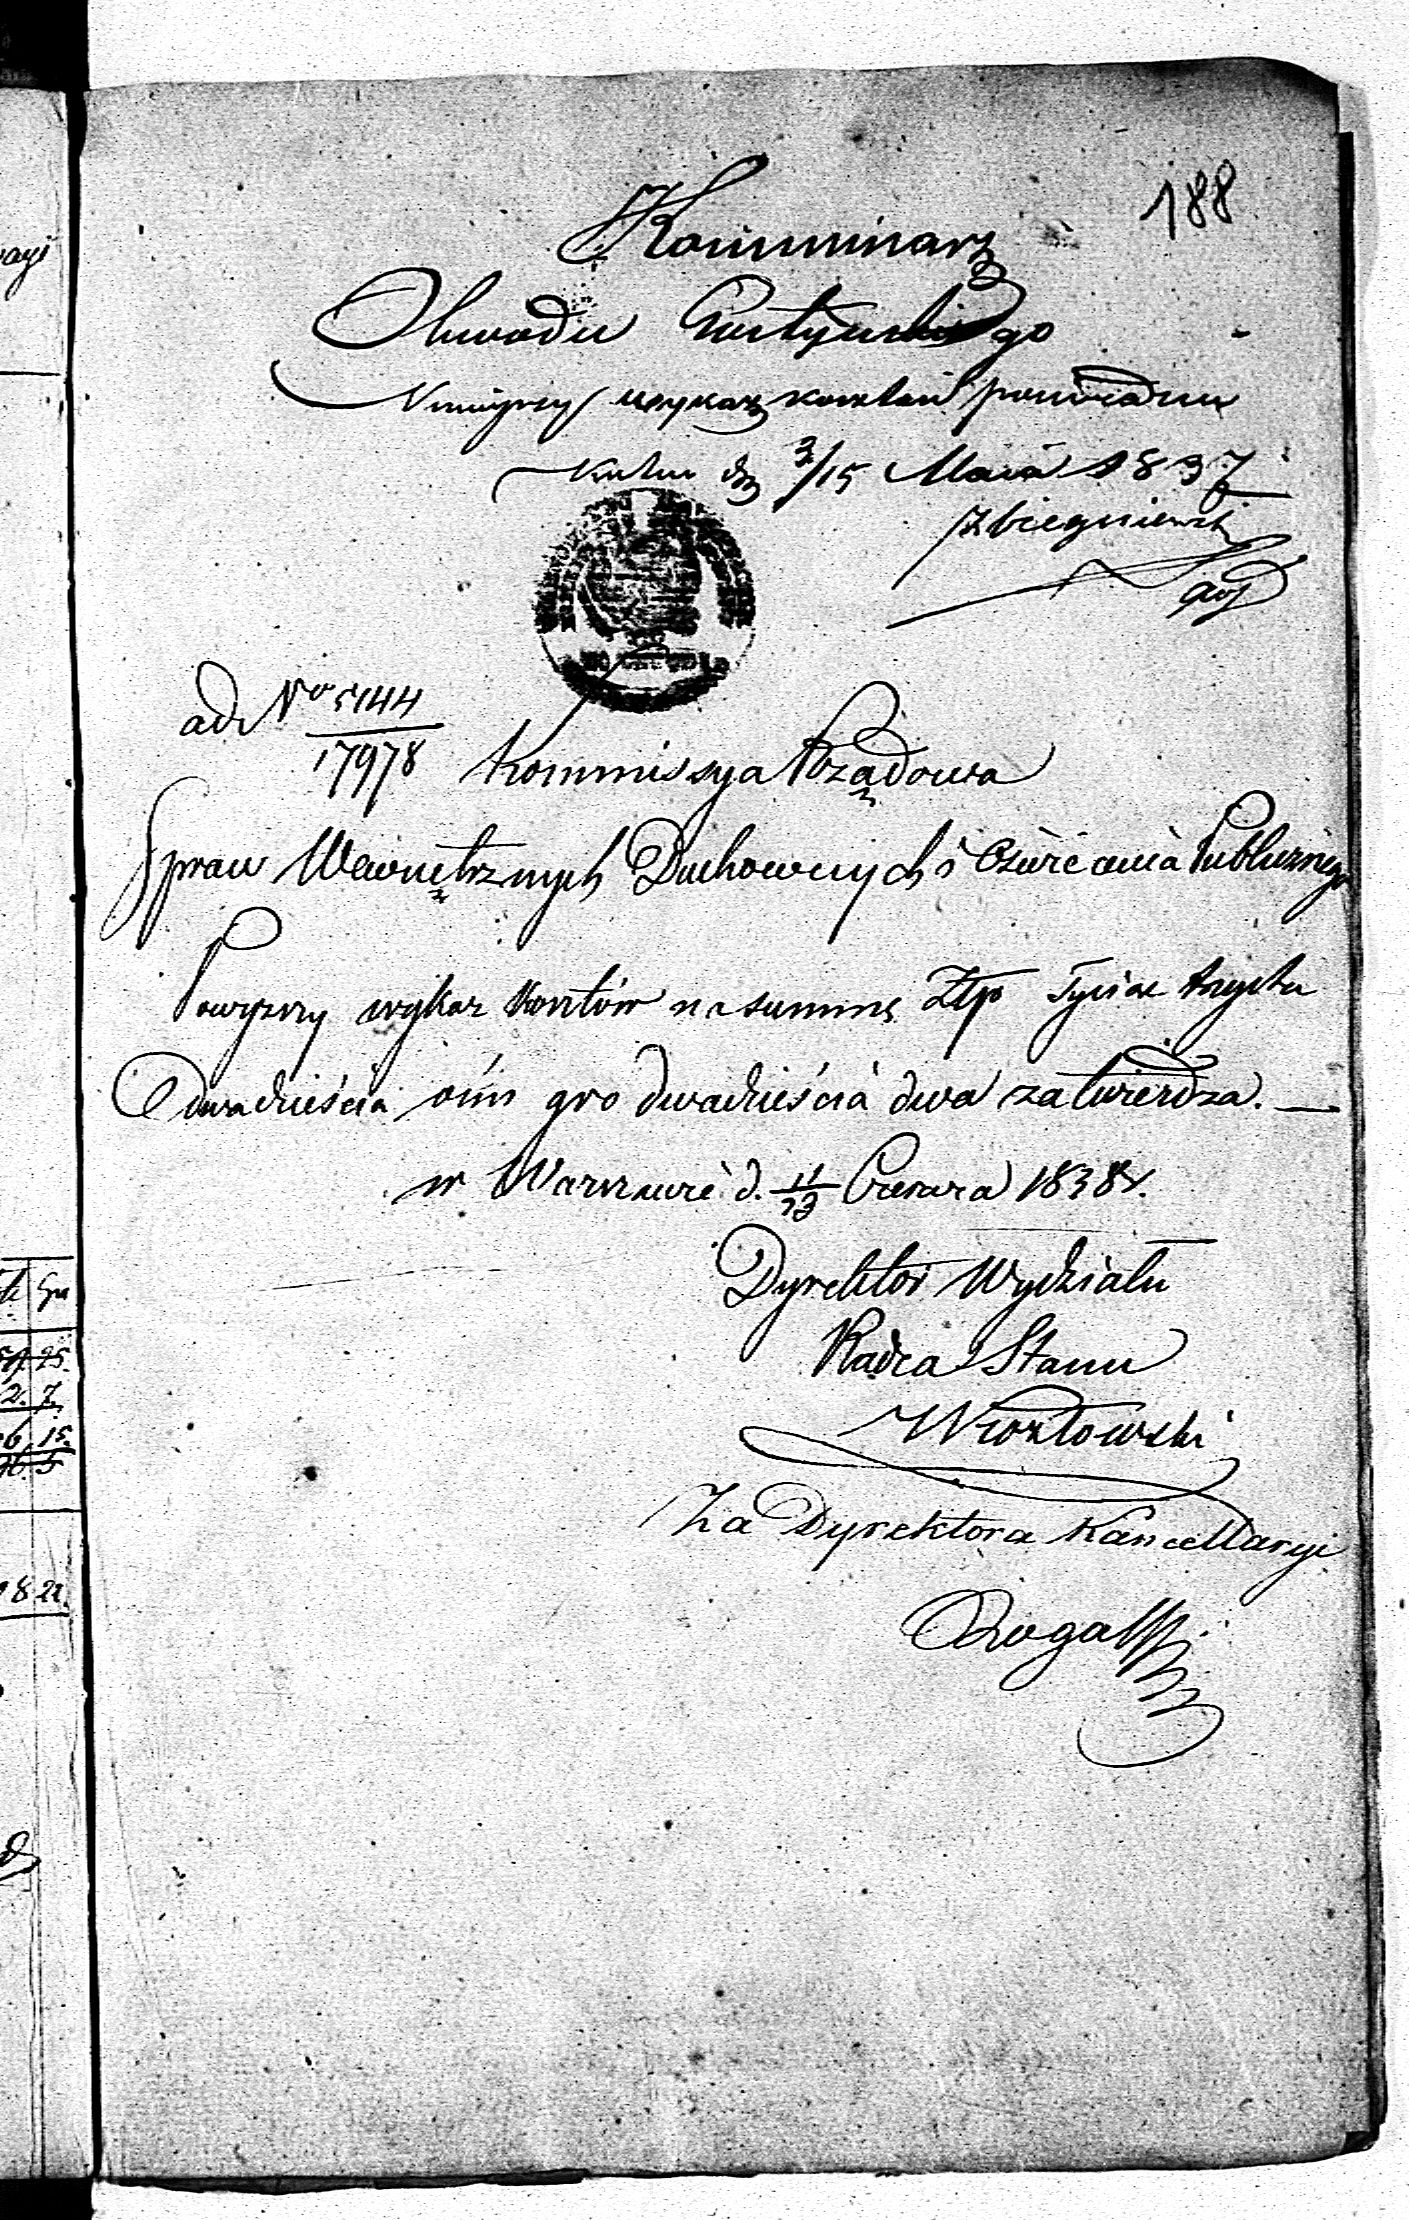 188
Kommissarz
Obwodu Gostyńskiego
Niniejszy wykaz kosztów poświadcza
Kutno d. 3/15 Maia 1837
Zbiegniewski
ad No 5144
17978
Kommissya Rządowa
Spraw Wewnętrznych Duchownych i Oświecenia Publicznego
Powyższy wykaz kosztów na summę Złp Tysiąc trzysta
Dwadzieścia ośm gro dwadzieścia dwa zatwierdza. —
w Warszawie d. 11/23 Czerwca 1838 r.
Dyrektor Wydziału
Radca Stanu
Kozłowski
Za Dyrektora Kancellaryi
Rogalski